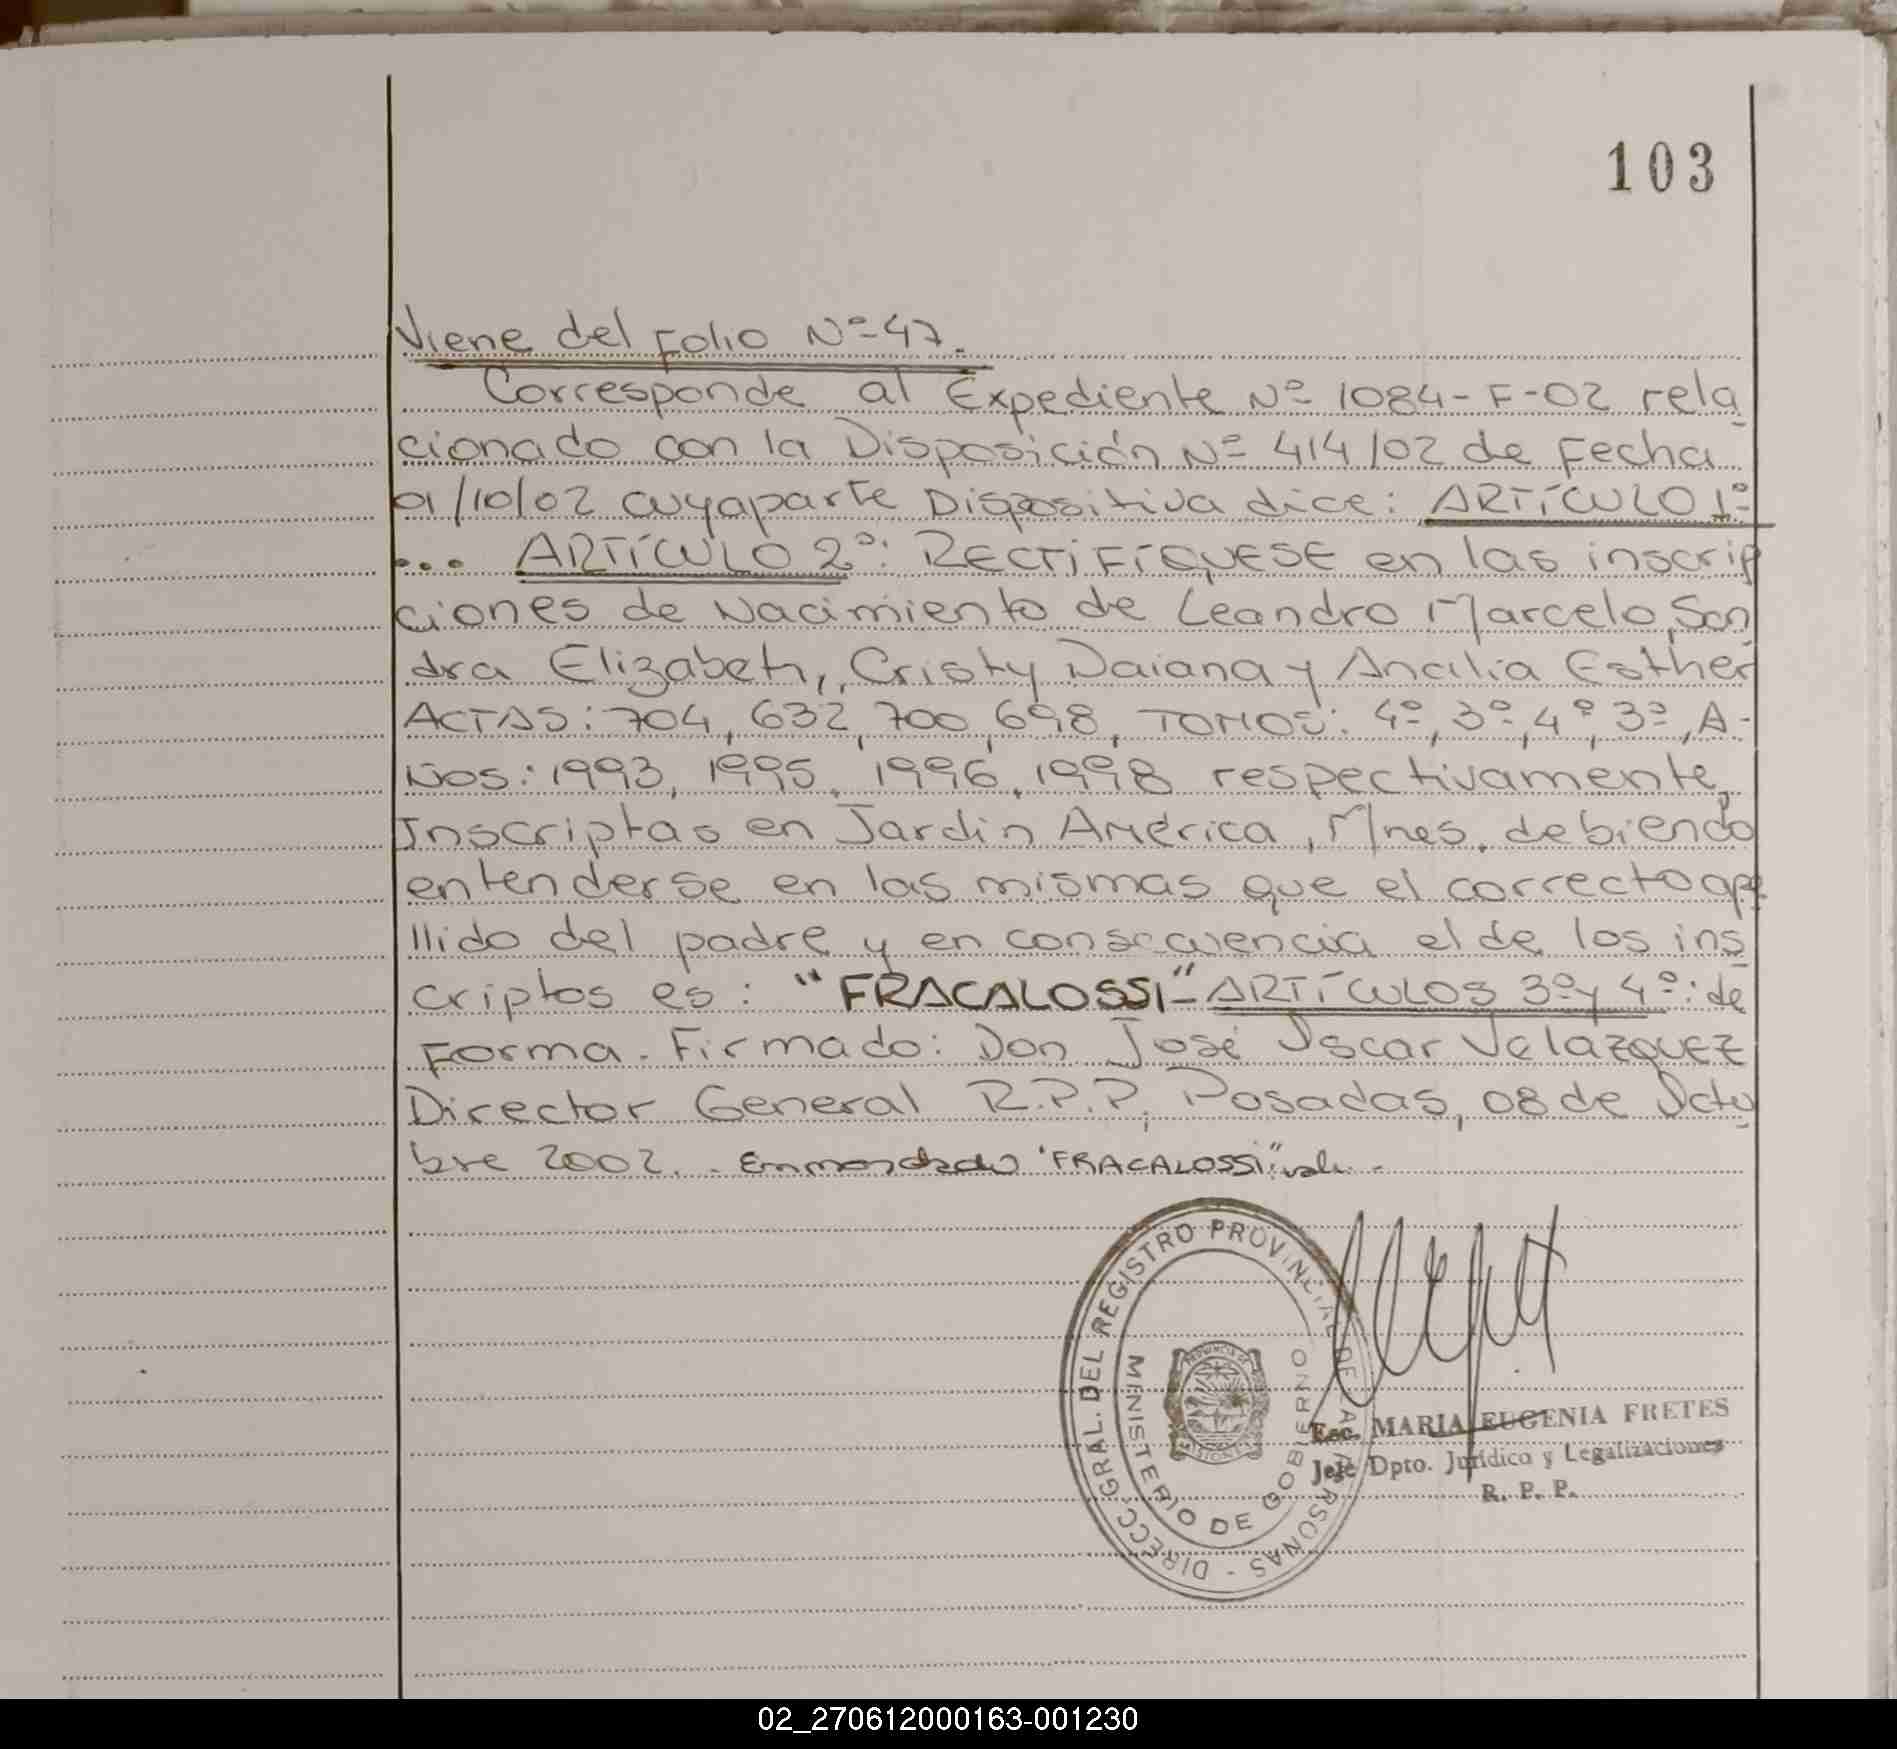 103
Viene del Folio Nº 47.
Corresponde al Expediente Nº 1084-F-02 rela
cionado con la Disposición Nº 414/02 de Fecha
01/10/02 cuya parte Dispositiva dice: ARTÍCULO 1º
... ARTÍCULO 2º: RECTIFÍQUESE en las inscrip
ciones de Nacimiento de Leandro Marcelo, San
dra Elizabeth, Cristy Daiana y Analia Esther
ACTAS: 704, 632, 700, 698, TOMOS: 4º, 3º, 4º, 3º, A-
ÑOS: 1993, 1995, 1996, 1998 respectivamente,
Inscriptas en Jardín América, Mnes. debiendo
entenderse en las mismas que el correcto ape
llido del padre y en consecuencia el de los ins
criptos es: "FRACALOSSI"- ARTÍCULOS 3º y 4º: de
Forma. Firmado: Don José Oscar Velazquez
Director General R.P.P. Posadas, 08 de Octu
bre 2002. Enmendado "FRACALOSSI" vale.-
DIRECC. GRAL. DEL REGISTRO PROVINCIAL DE LAS PERSONAS -
MINISTERIO DE GOBIERNO
PROVINCIA DE
MISIONES
Esc. MARIA EUGENIA FRETES
Jefe Dpto. Jurídico y Legalizaciones
R. P. P.
02_270612000163-001230